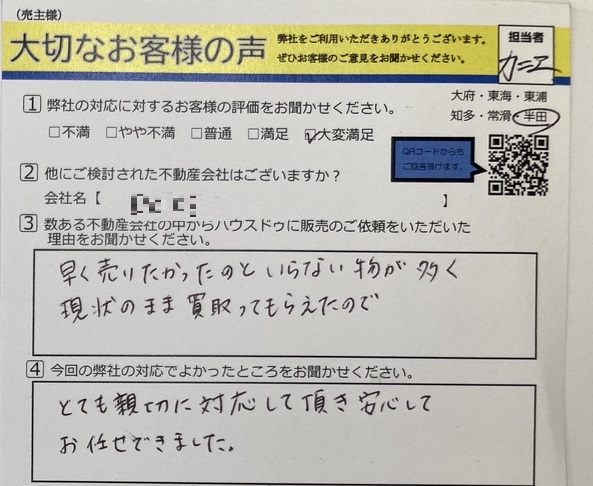 （売主様）
大切なお客様の声
弊社をご利用いただきありがとうございます。
ぜひお客様のご意見をお聞かせください。
担当者
カニエ
大府・東海・東浦
知多・常滑・半田
1 弊社の対応に対するお客様の評価をお聞かせください。
□不満 □やや不満 □普通 □満足 ☑大変満足
QRコードからも
ご回答頂けます。
2 他にご検討された不動産会社はございますか？
会社名【 】
3 数ある不動産会社の中からハウスドゥに販売のご依頼をいただいた
理由をお聞かせください。
早く売りたかったのといらない物が多く
現状のまま買取ってもらえたので
4 今回の弊社の対応でよかったところをお聞かせください。
とても親切に対応して頂き安心して
お任せできました。